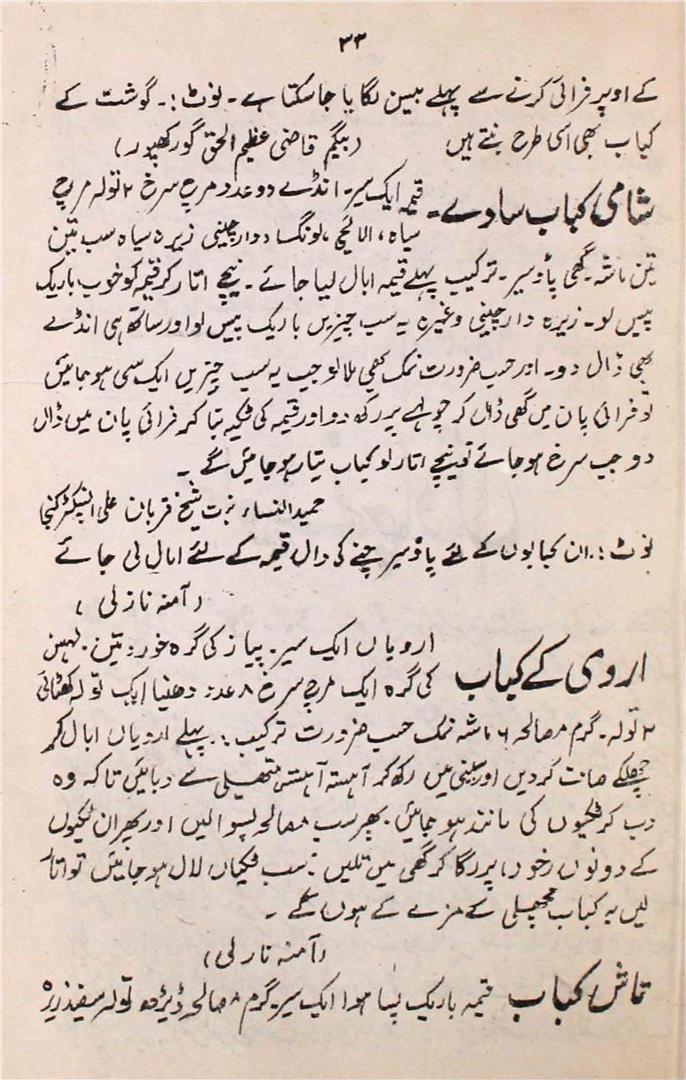 ۳۳
کے اوپر فرائی کرنے سے پہلے بیسن لگایا جاسکتا ہے۔ نوٹ:۔ گوشت کے
کباب بھی اسی طرح بنتے ہیں (بیگم قاضی عظیم الحق گورکھپور)
شامی کباب سادے۔ قیمہ ایک سیر۔ انڈے دو عدد مرچ سرخ ۲ تولہ مرچ
سیاہ، الائچی، لونگ دار چینی زیرہ سیاہ سب تین
تین ماشہ۔ گھی پاؤ سیر۔ ترکیب پہلے قیمہ ابال لیا جائے۔ نیچے اتار کر قیمہ کو خوب باریک
پیس لو۔ زیرہ دار چینی وغیرہ یہ سب چیزیں باریک پیس لو اور ساتھ ہی انڈے
بھی ڈال دو۔ اور حسب ضرورت نمک بھی ملا لو جب یہ سب چیزیں ایک سی ہو جائیں
تو فرائی پان میں گھی ڈال کر چولہے پر رکھ دو اور قیمہ کی ٹکیہ بنا کر فرائی پان میں ڈال
دو جب سرخ ہو جائے تو نیچے اتار لو کباب تیار ہو جائیں گے۔
حمید النساء بنت شیخ قربان علی انسپکٹر
نوٹ:۔ ان کبابوں کے لئے پاؤ سیر چنے کی دال قیمہ کے لئے ابال لی جائے
(آمنہ نازلی)
اروی کے کباب اروياں ایک سیر۔ پیاز کی گرہ خورد تین۔ لہسن
کی گرہ ایک مرچ سرخ ۸ عدد دھنیا ایک تولہ کھٹائی
۲ تولہ۔ گرم مصالحہ ۶ ماشہ نمک حسب ضرورت ترکیب:۔ پہلے اروياں ابال کر
چھلکے صاف کر دیں اور سینی میں رکھ کر آہستہ آہستہ ہتھیلی سے دبائیں تاکہ وہ
دب کر ٹکیوں کی مانند ہو جائیں۔ پھر سب مصالحہ پسوالیں اور پھر ان ٹکیوں
کے دونوں رخوں پر لگا کر گھی میں تلیں۔ جب ٹکیاں لال ہو جائیں تو اتار
لیں یہ کباب مچھلی کے مزے کے ہوں گے۔
(آمنہ نازلی)
تاش کباب قیمہ باریک پسا ہوا ایک سیر۔ گرم مصالحہ ڈیڑھ تولہ سفید زیرہ